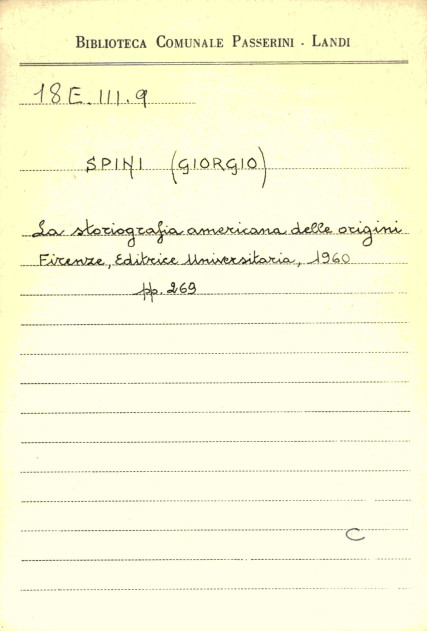 BIBLIOTECA COMUNALE PASSERINI - LANDI
18 E. III. 9
SPINI (GIORGIO)
La storiografia americana delle origini
Firenze, Editrice Universitaria, 1960
pp. 269
C